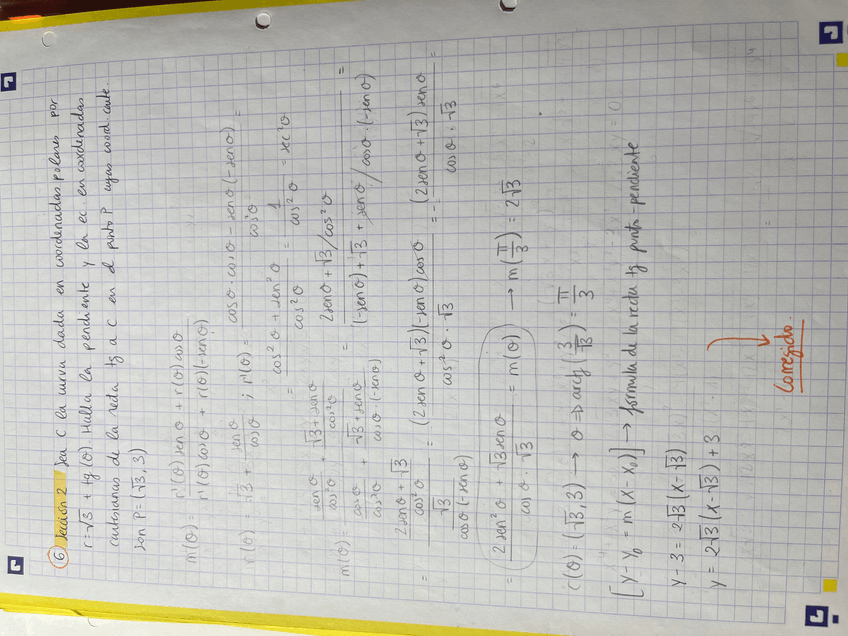 ⑥ Sección 2 Sea C la curva dada en coordenadas polares por
r=√3 + tg(θ). Halla la pendiente y la ec en coordenadas
cartesianas de la recta tg a C en el punto P cuyas coord. carte.
son P=(√3, 3)
m(θ) = (r'(θ) sen θ + r(θ) cos θ) / (r'(θ) cos θ + r(θ)(-sen θ))
r(θ) = √3 + sen θ / cos θ ; r'(θ) = (cos θ · cos θ - sen θ (-sen θ)) / cos² θ =
= (cos² θ + sen² θ) / cos² θ = 1 / cos² θ = sec² θ
m(θ) = (sen θ / cos² θ + (√3 + sen θ) / cos² θ) / (cos θ / cos² θ + (√3 + sen θ) / cos θ (-sen θ)) = (2sen θ + √3 / cos² θ) / ((-sen θ) + √3 + sen θ / cos θ · (-sen θ)) =
= ((2sen θ + √3) / cos² θ) / (√3 / cos θ (-sen θ)) = (2sen θ + √3)(-sen θ) cos θ / cos² θ · √3 = - (2sen θ + √3) sen θ / cos θ · √3 =
= (2sen² θ + √3 sen θ) / (cos θ · √3) = m(θ) → m(π/3) = 2√3
C(θ) = (√3, 3) → θ => arctg (3/√3) = π/3
[y - y₀ = m(x - x₀)] → fórmula de la recta tg punto-pendiente
y - 3 = 2√3 (x - √3)
y = 2√3 (x - √3) + 3
Corregido.